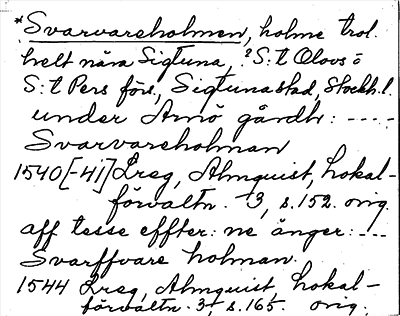 *Svarvareholmen, holme trol.
helt nära Sigtuna, ? S:t Olovs o
S:t Pers förs., Sigtuna stad, Stockh. l.
under Arnö gårdh: ----
Svarvareholman
1540[-41] Lreg, Almquist, Lokal-
förvaltn. 3, s. 152. orig.
aff tesse effter: ne änger: ---
Svarffvare holman.
1544 Lreg, Almquist, Lokal-
förvaltn. 3, s. 165. orig.